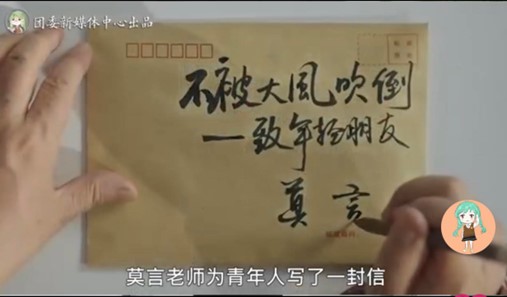 团委新媒体中心出品
不被大風吹倒
一致年轻朋友
莫言
莫言老师为青年人写了一封信